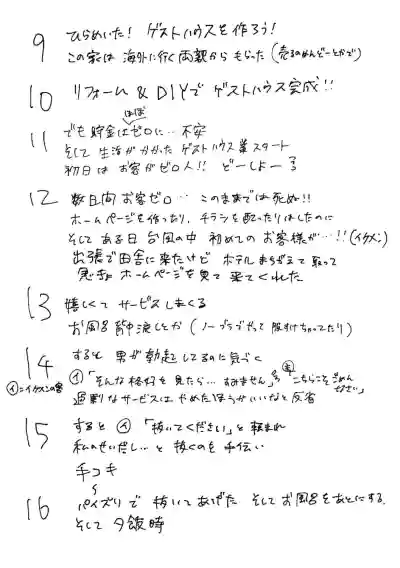 9 ひらめいた! ゲストハウスを作ろう!
この家は 海外に行く両親からもらった (売るのめんどーとかで)
10 リフォーム & DIYで ゲストハウス完成!!
ほぼ
11 でも貯金はゼロに… 不安
そして 生活がかかった ゲストハウス業スタート
初日は お客がゼロ人!! どーしよー
12 数日間 お客ゼロ… このままでは死ぬ!!
ホームページを作ったり、チラシを配ったりしたのに
そして ある日 台風の中 初めての お客様が…!! (イケメン)
出張で田舎に来たけど ホテルまちがえて取って
急きょ ホームページを見て 来てくれた
13 嬉しくて サービスしまくる
お風呂で背中流しとか (ノーブラでやって 服すけちゃってたり)
14 すると 男が勃起してるのに気づく
イ=イケメンの客
イ「そんな格好を見たら… すみません」 主「こちらこそごめんなさい」
過剰なサービスは やめたほうがいいなと反省
15 すると イ「抜いてください」と頼まれ
私のせいだし…と 抜くのを手伝い
手コキ
16 パイズリで 抜いてあげた そして お風呂をあとにする.
そして 夕飯時